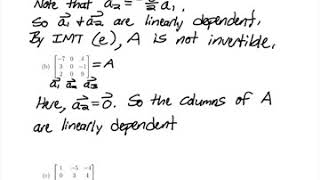 Note that a₂ = -5/2 a₁.
So a₁ + a₂ are linearly dependent.
By IMT (e), A is not invertible.
(b) [-7 0 4; 3 0 -1; 2 0 9] = A
a₁ a₂ a₃
Here, a₂ = 0. So the columns of A
are linearly dependent
(c) [1 -5 -4; 0 3 4